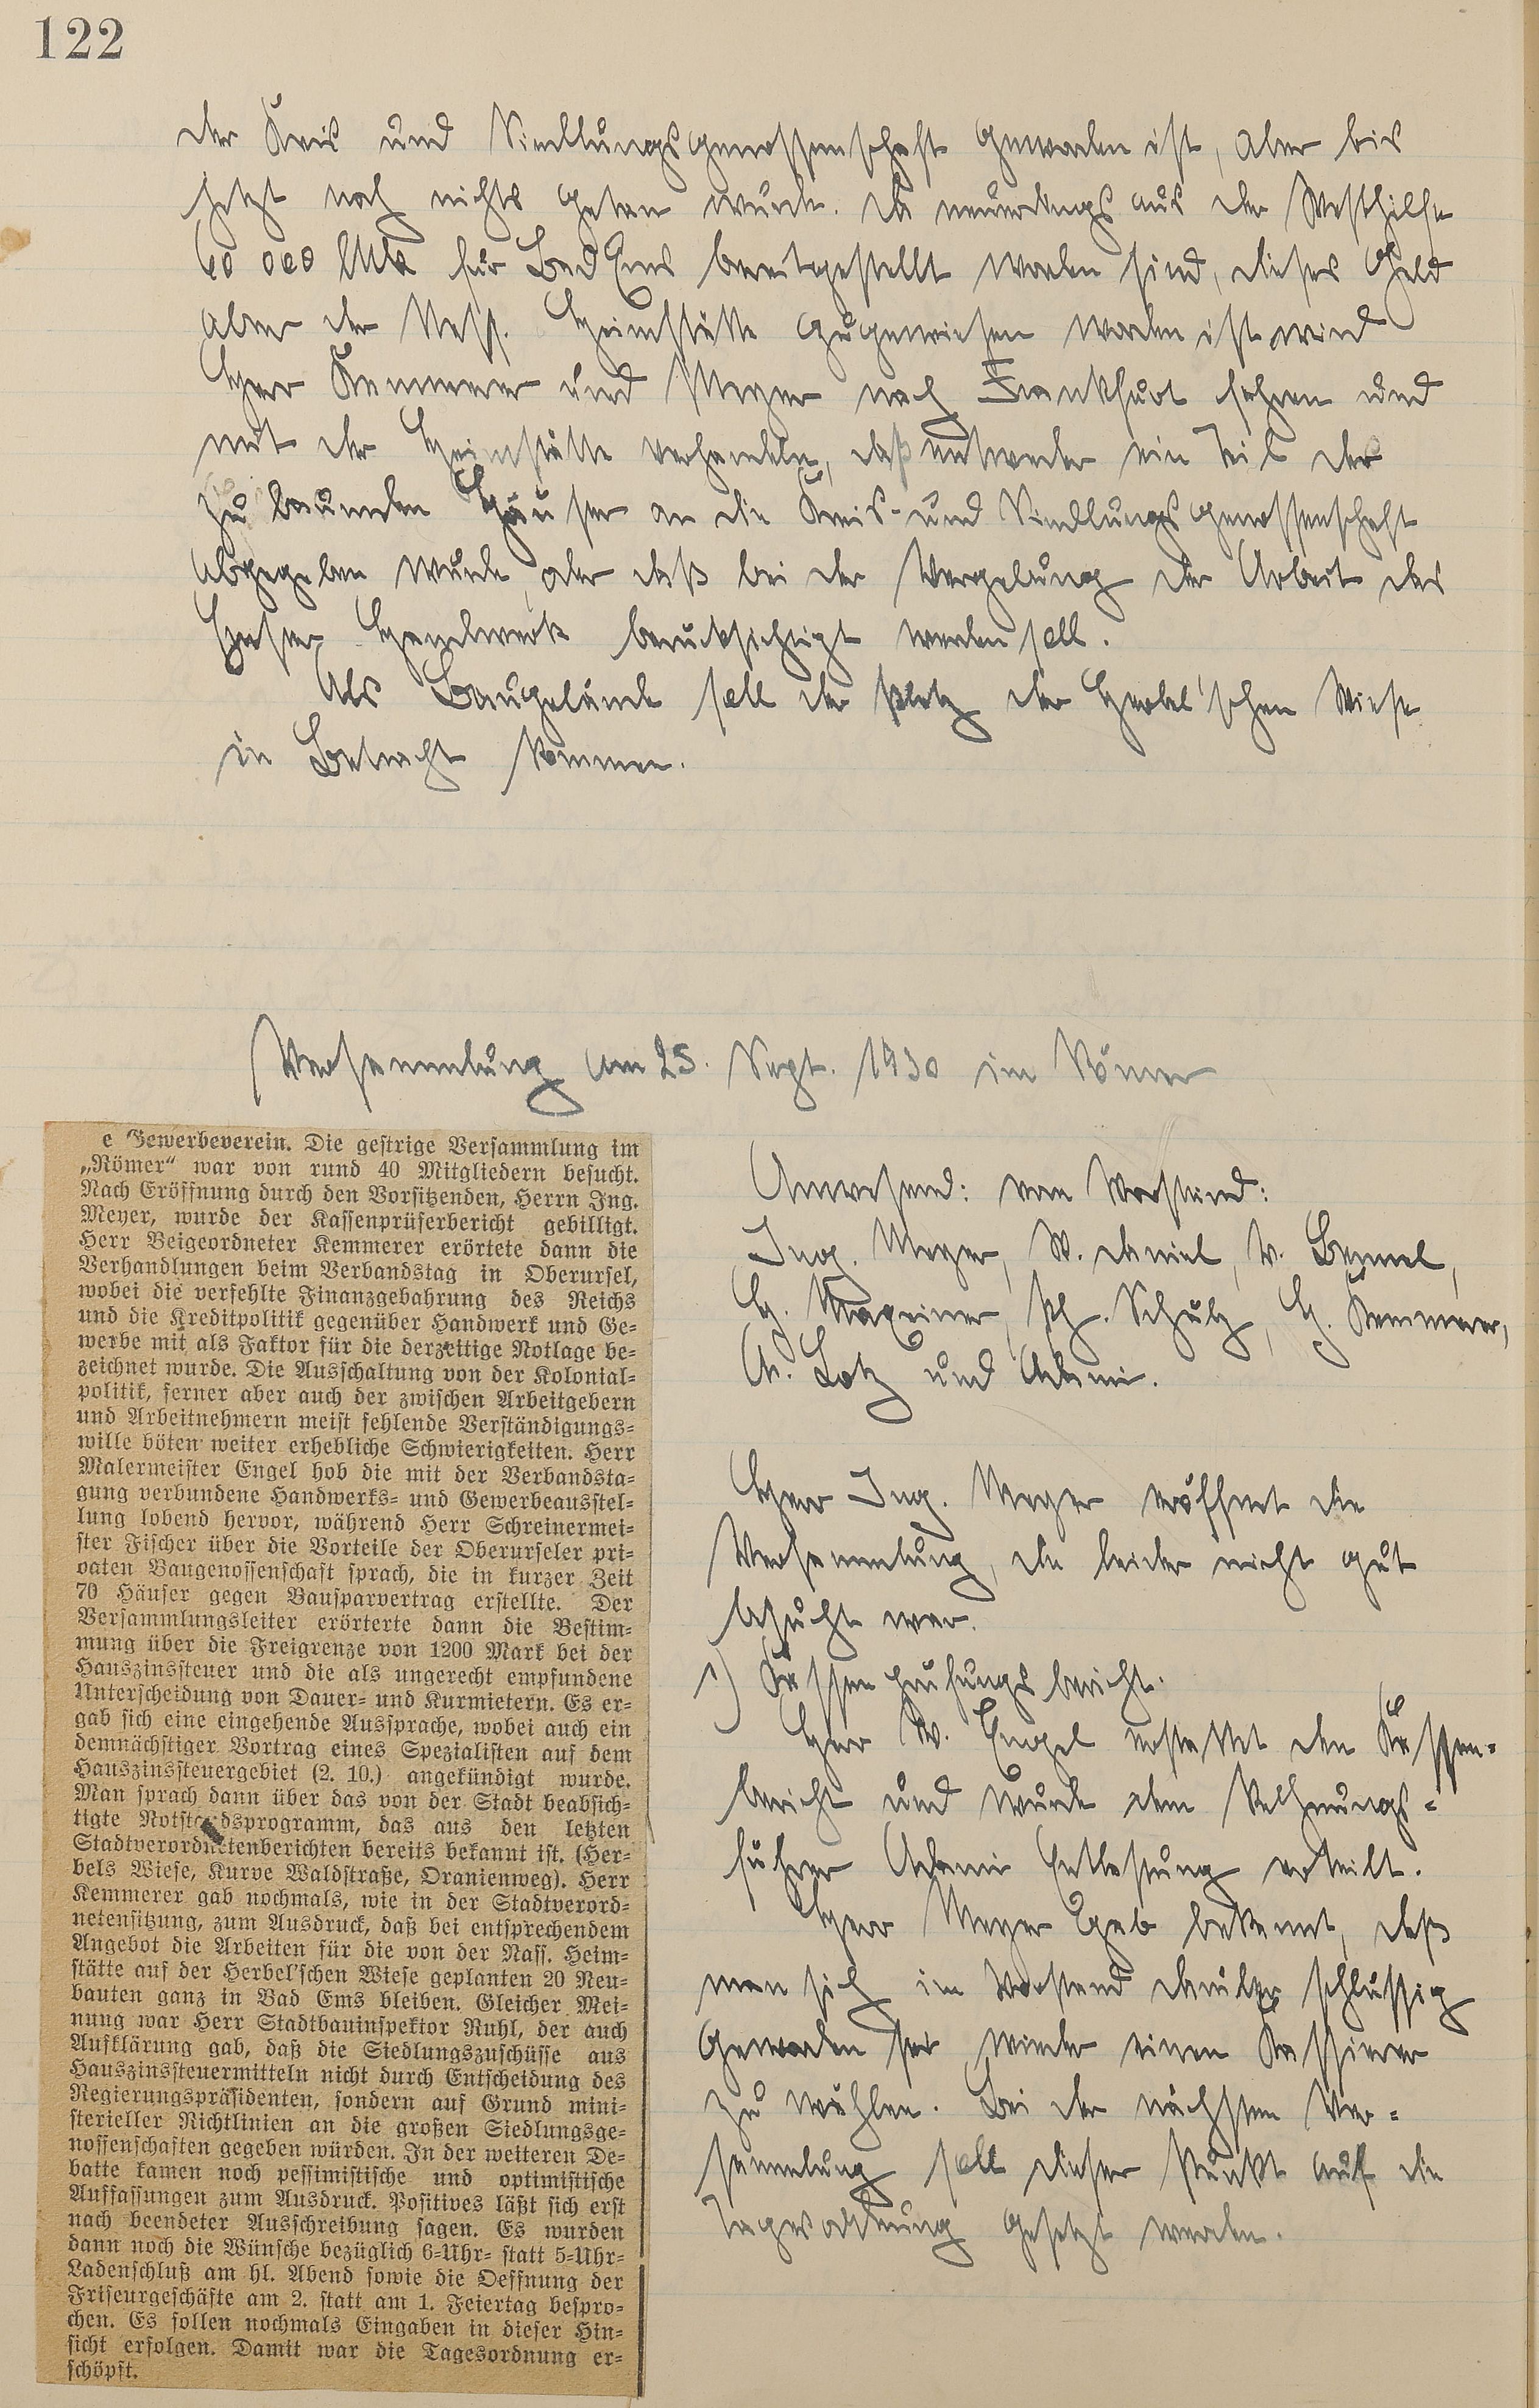 122
der Kreis und Siedlungsgenossenschaft geworden ist, aber bis
jetzt noch nichts getan wurde. Da neuerdings aus der Westhilfe
60 000 Mk für Bad Ems bereitgestellt worden sind, dieses Geld
aber der Nass. Heimstätte zugewiesen worden ist wird
Herr Kemmerer und Meyer nach Frankfurt fahren und
mit der Heimstätte verhandeln, daß entweder ein Teil der
zu bauenden Häuser an die Kreis- und Siedlungsgenossenschaft
abgegeben wurde, oder daß bei der Vergebung der Arbeit das
Emser Handwerk berücksichtigt werden soll.
Als Baugelände soll der Platz der Herbel'schen Wiese
in Betracht kommen.
Versammlung am 25. Sept. 1930 im Römer
e Gewerbeverein. Die gestrige Versammlung im
„Römer“ war von rund 40 Mitgliedern besucht.
Nach Eröffnung durch den Vorsitzenden, Herrn Ing.
Meyer, wurde der Kassenprüferbericht gebilligt.
Herr Beigeordneter Kemmerer erörtete dann die
Verhandlungen beim Verbandstag in Oberursel,
wobei die verfehlte Finanzgebahrung des Reichs
und die Kreditpolitik gegenüber Handwerk und Ge-
werbe mit als Faktor für die derzeitige Notlage be-
zeichnet wurde. Die Ausschaltung von der Kolonial-
politik, ferner aber auch der zwischen Arbeitgebern
und Arbeitnehmern meist fehlende Verständigungs-
wille böten weiter erhebliche Schwierigkeiten. Herr
Malermeister Engel hob die mit der Verbandsta-
gung verbundene Handwerks- und Gewerbeausstel-
lung lobend hervor, während Herr Schreinermei-
ster Fischer über die Vorteile der Oberurseler pri-
vaten Baugenossenschaft sprach, die in kurzer Zeit
70 Häuser gegen Bausparvertrag erstellte. Der
Versammlungsleiter erörterte dann die Bestim-
mung über die Freigrenze von 1200 Mark bei der
Hauszinssteuer und die als ungerecht empfundene
Unterscheidung von Dauer- und Kurmietern. Es er-
gab sich eine eingehende Aussprache, wobei auch ein
demnächstiger Vortrag eines Spezialisten auf dem
Hauszinssteuergebiet (2. 10.) angekündigt wurde.
Man sprach dann über das von der Stadt beabsich-
tigte Notstandsprogramm, das aus den letzten
Stadtverordnetenberichten bereits bekannt ist. (Her-
bels Wiese, Kurve Waldstraße, Oranienweg). Herr
Kemmerer gab nochmals, wie in der Stadtverord-
netensitzung, zum Ausdruck, daß bei entsprechendem
Angebot die Arbeiten für die von der Nass. Heim-
stätte auf der Herbel'schen Wiese geplanten 20 Neu-
bauten ganz in Bad Ems bleiben. Gleicher Mei-
nung war Herr Stadtbauinspektor Ruhl, der auch
Aufklärung gab, daß die Siedlungszuschüsse aus
Hauszinssteuermitteln nicht durch Entscheidung des
Regierungspräsidenten, sondern auf Grund mini-
sterieller Richtlinien an die großen Siedlungsge-
nossenschaften gegeben würden. In der weiteren De-
batte kamen noch pessimistische und optimistische
Auffassungen zum Ausdruck. Positives läßt sich erst
nach beendeter Ausschreibung sagen. Es wurden
dann noch die Wünsche bezüglich 6-Uhr- statt 5-Uhr-
Ladenschluß am hl. Abend sowie die Oeffnung der
Friseurgeschäfte am 2. statt am 1. Feiertag bespro-
chen. Es sollen nochmals Eingaben in dieser Hin-
sicht erfolgen. Damit war die Tagesordnung er-
schöpft.
Anwesend: vom Vorstand:
Ing. Meyer, W. Daniel, W. Bermel,
H. Maxeiner, Ph. Schulz, H. Kemmerer,
A. Lotz und Adami.
Herr Ing. Meyer eröffnet die
Versammlung, die leider nicht gut
besucht war.
1) Kassenprüfungsbericht.
Herr W. Engel erstattet den Kassen-
bericht und wurde dem Rechnungs-
führer Adami Entlastung erteilt.
Herr Meyer gab bekannt, daß
man sich im Vorstand darüber schlüssig
geworden sei wieder einen Kassierer
zu wählen. Bei der nächsten Ver-
sammlung soll dieser Punkt auf die
Tagesordnung gesetzt werden.